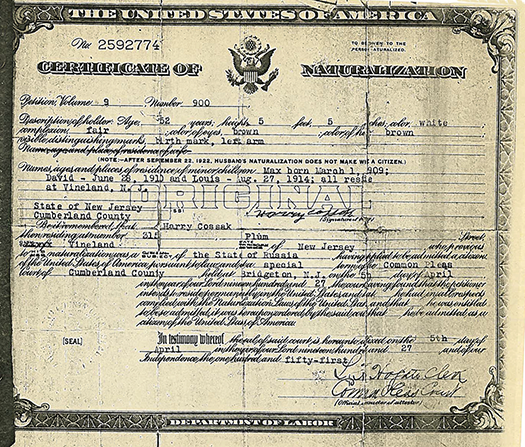 THE UNITED STATES OF AMERICA
No. 2592774
TO BE GIVEN TO THE
PERSON NATURALIZED.
CERTIFICATE OF NATURALIZATION
Petition, Volume 9 Number 900
Description of holder: Age, 52 years; height, 5 feet, 5 inches; color, white
complexion, fair color of eyes, brown color of hair, brown
visible distinguishing marks, birth mark, left arm
Name, age and place of residence of wife
(NOTE:-AFTER SEPTEMBER 22, 1922, HUSBAND'S NATURALIZATION DOES NOT MAKE WIFE A CITIZEN.)
Names, ages and places of residence of minor children Max born March 1, 909;
David - June 28, 1910 and Louis - Aug. 27, 1914; all reside
at Vineland, N. J.
ORIGINAL
State of New Jersey
Cumberland County
SS:
Harry Cossak
(Signature of holder)
Be it remembered, that Harry Cossak
then residing at number 315 Plum Street
Vineland of New Jersey who previous
to his naturalization was a subject of the State of Russia having applied to be admitted a citizen
of the United States of America, pursuant to law, and at a special term of the Common Pleas
court of Cumberland County held at Bridgeton, N.J. on the 5th day of April
in the year of our Lord nineteen hundred and 27 the court having found that the petitioner
intends to reside permanently in the United States, and that he had in all respects
complied with the Naturalization Laws of the United States, and that he was entitled
to be so admitted, it was thereupon ordered by the said court that he be admitted as a
citizen of the United States of America.
In testimony whereof the seal of said court is hereunto affixed on the 5th day of
April in the year of our Lord nineteen hundred and 27 and of our
Independence the one hundred and fifty-first
(SEAL)
Clerk
Common Pleas Court
DEPARTMENT OF LABOR